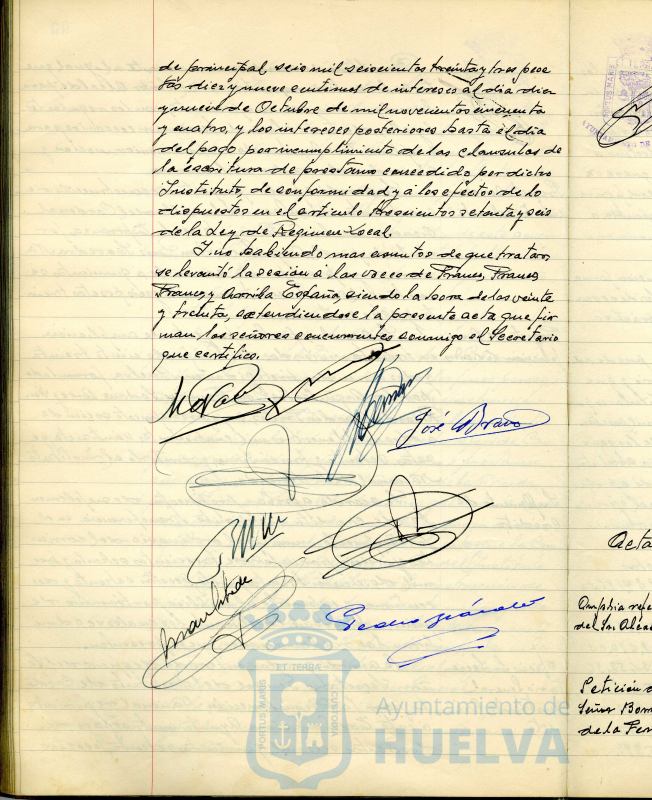 de principal seis mil seiscientos treinta y tres pese
tas diez y nueve centimos de intereses al dia diez
y nueve de Octubre de mil novecientos cincuenta
y cuatro, y los intereses posteriores hasta el dia
del pago, por incumplimiento de las clausulas de
la escritura de prestamo concedido por dicho
Instituto, de conformidad y a los efectos de lo
dispuestos en el articulo trescientos setenta y seis
de la Ley de Regimen Local.
Y no habiendo mas asuntos de que tratar,
se levantó la sesion a las voces de Franco, Franco,
Franco, y Arriba España, siendo la hora de las veinte
y treinta, extendiendose la presente acta que fir
man los señores concurrentes conmigo el Secretario
que certifico.
José Bravo
Pedro
ET TERRA
PORTUS MARIS
CUSTODIA
Ayuntamiento de
HUELVA
Acta
Amplia refe
del Sr. Alca
Peticion
Señor
de la